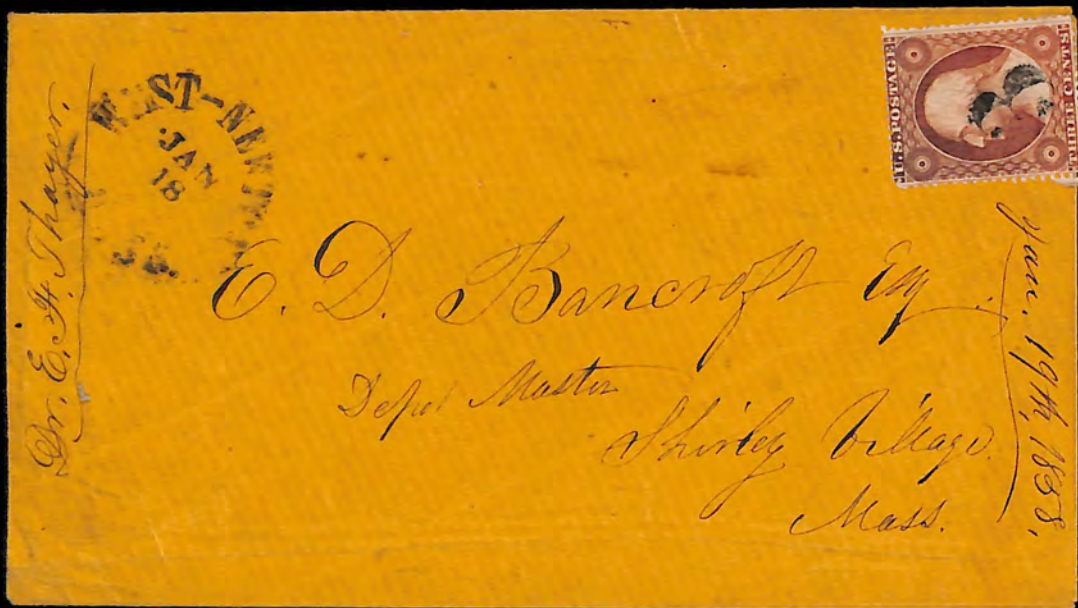 Dr. E. H. Thayer.
WEST-NEWTON
JAN
18
U.S. POSTAGE
THREE CENTS
E. D. Bancroft Esq.
Depot Master
Shirley Village.
Mass.
Jan. 19th, 1858,